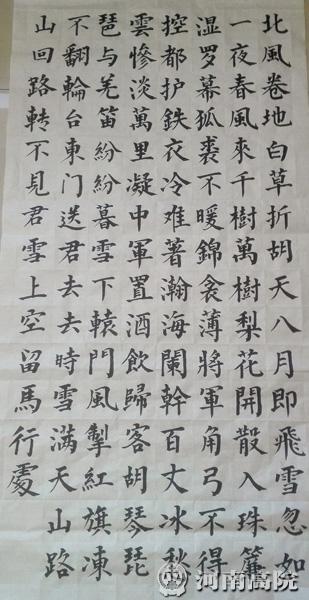 北風卷地白草折胡天八月即飛雪忽如
一夜春風來千樹萬樹梨花開散入珠簾
湿罗幕狐裘不暖錦衾薄將軍角弓不得
控都护鉄衣冷难著瀚海闌幹百丈冰愁
雲慘淡萬里凝中軍置酒飲歸客胡琴琵
琶与羌笛紛紛暮雪下轅門風掣紅旗凍
不翻輪台東门送君去去時雪满天山路
山回路轉不見君雪上空留馬行處
河南高院